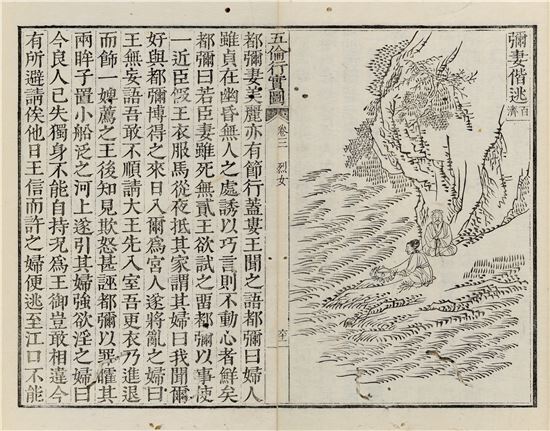 彌妻偕逃 百濟
五倫行實圖 卷三 烈女
都彌妻美麗亦有節行蓋婁王聞之語都彌曰婦人
雖貞在幽昏無人之處誘以巧言則不動心者鮮矣
都彌曰若臣妻雖死無貳王欲試之畱都彌以事使
一近臣假王衣服馬從夜抵其家謂其婦曰我聞爾
好與都彌博得之來日入爾爲宮人遂將亂之婦曰
王無妄語吾敢不順請大王先入室吾更衣乃進退
而飾一婢薦之王後知見欺怒甚誣都彌以罪矐其
兩眸子置小船泛之河上遂引其婦強欲淫之婦曰
今良人已失獨身不能自持況爲王御豈敢相違今
有所避請俟他日王信而許之婦便逃至江口不能